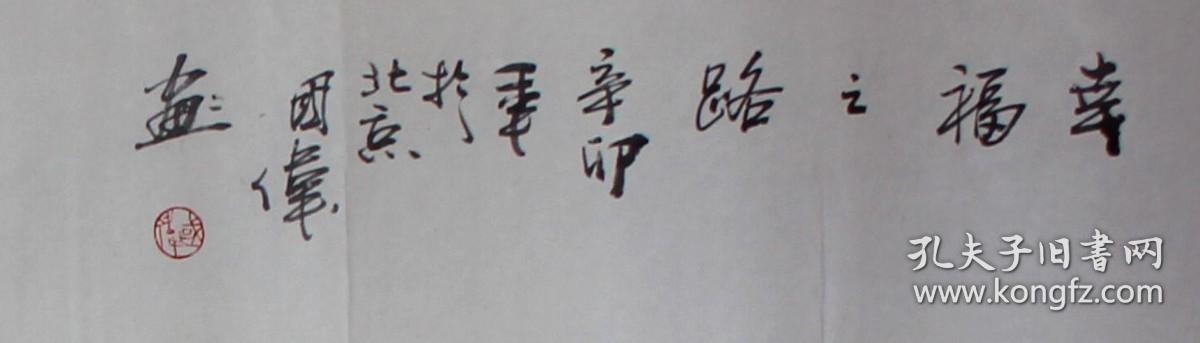 幸福之路
辛卯
年於
北京
國偉
画
孔夫子旧书网
www.kongfz.com